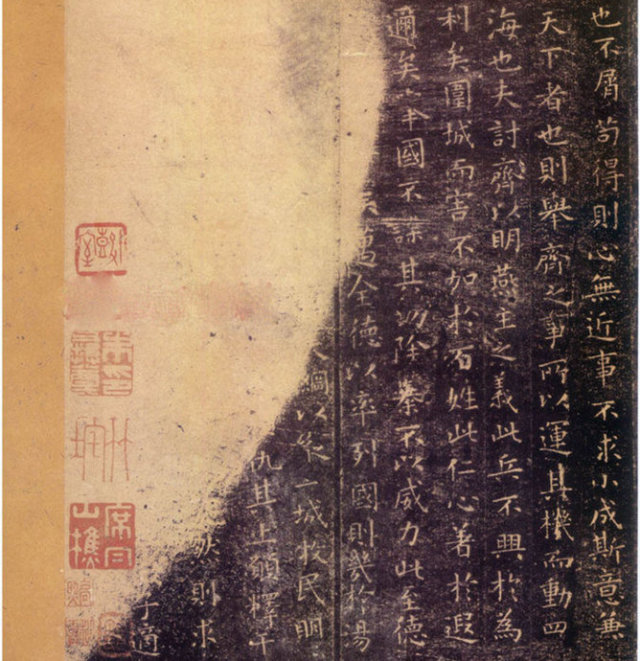 也不屑苟得則心無近事不求小成斯意兼
天下者也則舉齊之事所以運其機而動四
海也夫討齊以明燕主之義此兵不興於為
利矣圍城而害不加於百姓此仁心著於遐
邇矣舉國不謀其功除暴不以威力此至德
全德以率列國則幾於湯
綱以縱二城牧民明
仇其上願釋干
則求
子適